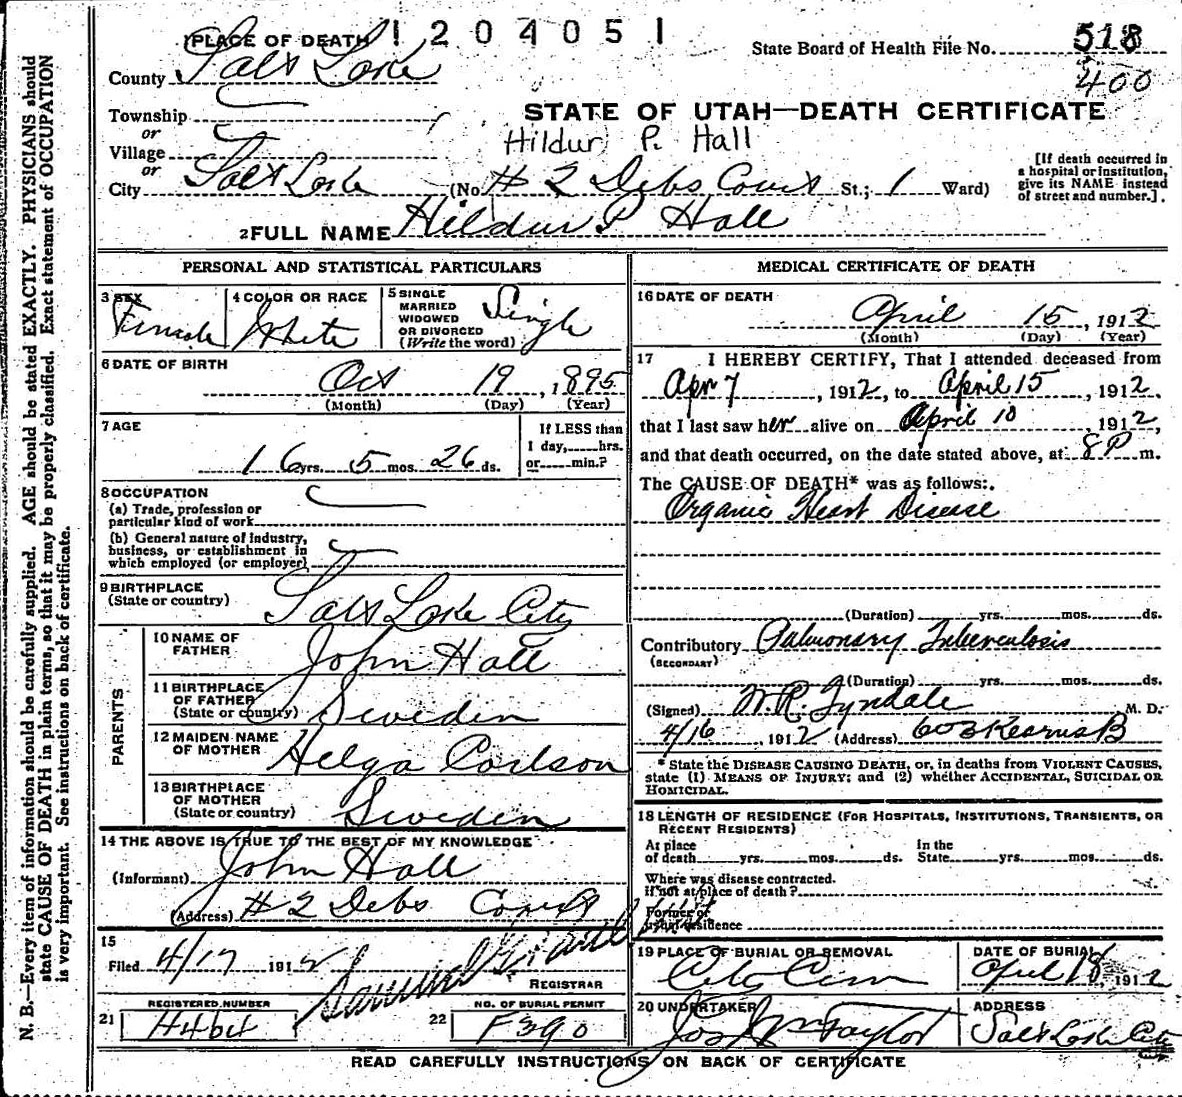 1204051
PLACE OF DEATH
State Board of Health File No. 518
400
County Salt Lake
STATE OF UTAH—DEATH CERTIFICATE
Township
or
Hildur P. Hall
Village
or
City Salt Lake (No. # 2 Debs Court St.; 1 Ward)
[If death occurred in a hospital or institution, give its NAME instead of street and number.]
2 FULL NAME Hildur P. Hall
PERSONAL AND STATISTICAL PARTICULARS
3 SEX Female
4 COLOR OR RACE White
5 SINGLE MARRIED WIDOWED OR DIVORCED (Write the word) Single
6 DATE OF BIRTH Oct 19, 1895
(Month) (Day) (Year)
7 AGE 16 yrs. 5 mos. 26 ds.
If LESS than
1 day, hrs.
or min.?
8 OCCUPATION
(a) Trade, profession or
particular kind of work
(b) General nature of industry,
business, or establishment in
which employed (or employer)
9 BIRTHPLACE
(State or country) Salt Lake City
PARENTS
10 NAME OF FATHER John Hall
11 BIRTHPLACE OF FATHER (State or country) Sweden
12 MAIDEN NAME OF MOTHER Helga Carlson
13 BIRTHPLACE OF MOTHER (State or country) Sweden
14 THE ABOVE IS TRUE TO THE BEST OF MY KNOWLEDGE
(Informant) John Hall
(Address) # 2 Debs Court
15
Filed 4/17 1912
REGISTRAR
REGISTERED NUMBER
21 H464
NO. OF BURIAL PERMIT
22 F390
MEDICAL CERTIFICATE OF DEATH
16 DATE OF DEATH
April 15, 1912
(Month) (Day) (Year)
17 I HEREBY CERTIFY, That I attended deceased from
Apr 7, 1912, to April 15, 1912.
that I last saw her alive on April 10, 1912,
and that death occurred, on the date stated above, at 8 P m.
The CAUSE OF DEATH* was as follows:
Organic Heart Disease
(Duration) yrs. mos. ds.
Contributory Pulmonary Tuberculosis
(SECONDARY)
(Duration) yrs. mos. ds.
(Signed) W. R. Tyndale M. D.
4/16, 1912 (Address) 603 Kearns B
* State the DISEASE CAUSING DEATH, or, in deaths from VIOLENT CAUSES,
state (1) MEANS OF INJURY; and (2) whether ACCIDENTAL, SUICIDAL OR
HOMICIDAL.
18 LENGTH OF RESIDENCE (FOR HOSPITALS, INSTITUTIONS, TRANSIENTS, OR
RECENT RESIDENTS)
At place of death yrs. mos. ds. In the State yrs. mos. ds.
Where was disease contracted.
if not at place of death?
Former or
usual residence
19 PLACE OF BURIAL OR REMOVAL City Cem
DATE OF BURIAL April 18, 1912
20 UNDERTAKER Jos Wm Taylor
ADDRESS Salt Lake City
READ CAREFULLY INSTRUCTIONS ON BACK OF CERTIFICATE
N. B.—Every item of information should be carefully supplied. AGE should be stated EXACTLY. PHYSICIANS should
state CAUSE OF DEATH in plain terms, so that it may be properly classified. Exact statement of OCCUPATION
is very important. See instructions on back of certificate.